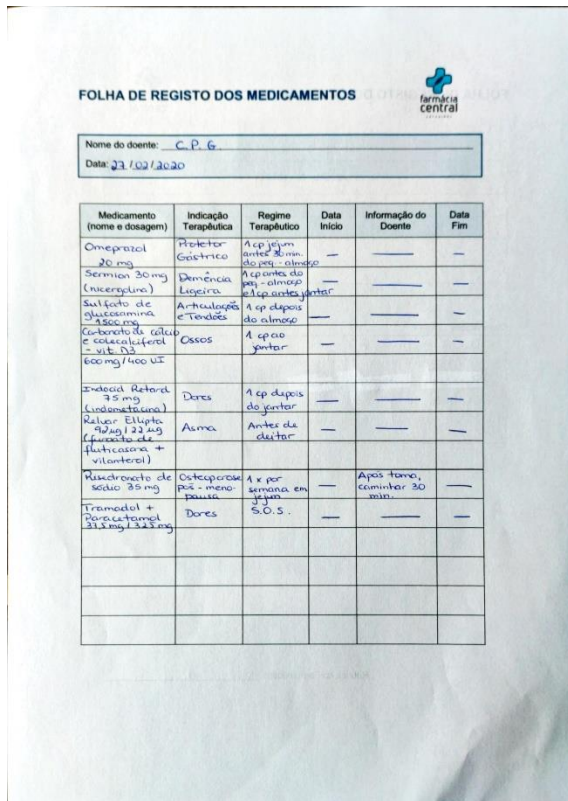 FOLHA DE REGISTO DOS MEDICAMENTOS
farmácia
central
Nome do doente: C. P. G.
Data: 27/02/2020
Medicamento (nome e dosagem) Indicação Terapêutica Regime Terapêutico Data Início Informação do Doente Data Fim
Omeprazol 20 mg Protetor Gástrico 1 cp jejum antes 30 min. do peq. - almoço — — —
Sermion 30 mg (nicergolina) Demência Ligeira 1 cp antes do peq - almoço e 1 cp antes jantar — — —
Sulfato de glucosamina 1500 mg Articulações e Tendões 1 cp depois do almoço — — —
Carbonato de cálcio e colecalciferol - vit. D3 Ossos 1 cp ao jantar — — —
600 mg / 400 UI
Indocid Retard 75 mg (indometacina) Dores 1 cp depois do jantar — — —
Relvar Ellipta 92 µg / 22 µg (furoato de Asma Antes de deitar — — —
fluticasona + vilanterol)
Risedronato de sódio 35 mg Osteoporose pós - menopausa 1 x por semana em jejum — Após toma, caminhar 30 min. —
Tramadol + Paracetamol 37,5 mg / 325 mg Dores S.O.S. — — —